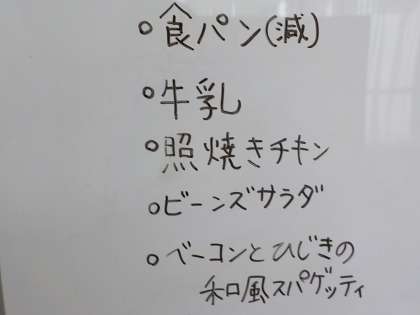 ○食パン(減)
○牛乳
○照焼きチキン
○ビーンズサラダ
○ベーコンとひじきの
和風スパゲッティ